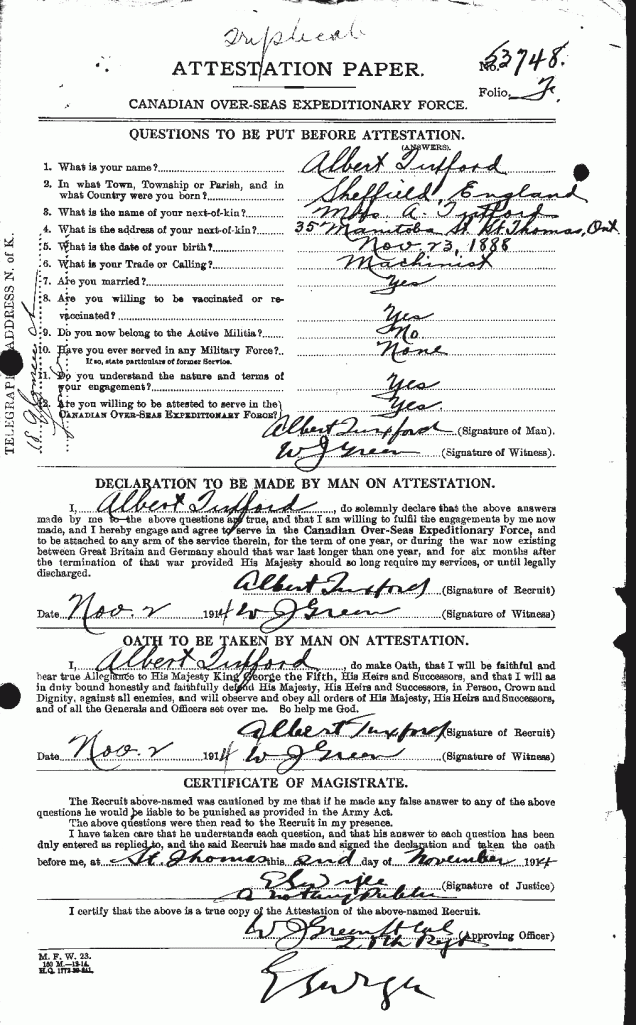 Triplicate
ATTESTATION PAPER.
No. 53748.
Folio. F
CANADIAN OVER-SEAS EXPEDITIONARY FORCE.
QUESTIONS TO BE PUT BEFORE ATTESTATION.
(ANSWERS).
1. What is your name? Albert Tufford
2. In what Town, Township or Parish, and in
what Country were you born? Sheffield England
3. What is the name of your next-of-kin? Mrs A. Tufford
4. What is the address of your next-of-kin? 35 Manitoba St. St Thomas, Ont
5. What is the date of your birth? Nov 23, 1888
6. What is your Trade or Calling? Machinist
7. Are you married? Yes
8. Are you willing to be vaccinated or re-
vaccinated? Yes
9. Do you now belong to the Active Militia? No
10. Have you ever served in any Military Force? None
If so, state particulars of former Service.
11. Do you understand the nature and terms of
your engagement? Yes
12. Are you willing to be attested to serve in the
CANADIAN OVER-SEAS EXPEDITIONARY FORCE? Yes.
Albert Tuxford (Signature of Man).
W J Green (Signature of Witness).
TELEGRAPH ADDRESS N. of K.
DECLARATION TO BE MADE BY MAN ON ATTESTATION.
I, Albert Tufford, do solemnly declare that the above answers
made by me to the above questions are true, and that I am willing to fulfil the engagements by me now
made, and I hereby engage and agree to serve in the Canadian Over-Seas Expeditionary Force, and
to be attached to any arm of the service therein, for the term of one year, or during the war now existing
between Great Britain and Germany should that war last longer than one year, and for six months after
the termination of that war provided His Majesty should so long require my services, or until legally
discharged.
Albert Tuxford (Signature of Recruit)
Date Nov. 2 1914 W J Green (Signature of Witness)
OATH TO BE TAKEN BY MAN ON ATTESTATION.
I, Albert Tufford, do make Oath, that I will be faithful and
bear true Allegiance to His Majesty King George the Fifth, His Heirs and Successors, and that I will as
in duty bound honestly and faithfully defend His Majesty, His Heirs and Successors, in Person, Crown and
Dignity, against all enemies, and will observe and obey all orders of His Majesty, His Heirs and Successors,
and of all the Generals and Officers set over me. So help me God.
Albert Tuxford (Signature of Recruit)
Date Nov. 2 1914 W J Green (Signature of Witness)
CERTIFICATE OF MAGISTRATE.
The Recruit above-named was cautioned by me that if he made any false answer to any of the above
questions he would be liable to be punished as provided in the Army Act.
The above questions were then read to the Recruit in my presence.
I have taken care that he understands each question, and that his answer to each question has been
duly entered as replied to, and the said Recruit has made and signed the declaration and taken the oath
before me, at St. Thomas this 2nd day of November 1914
(Signature of Justice)
A Notary Public
I certify that the above is a true copy of the Attestation of the above-named Recruit.
W J Green Lt Col (Approving Officer)
25th Regt
M. F. W. 23.
150 M.—12-14.
H.Q. 1772-39-241.